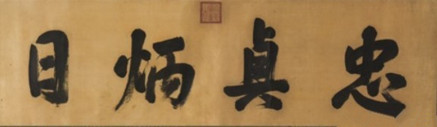 忠貞炳日